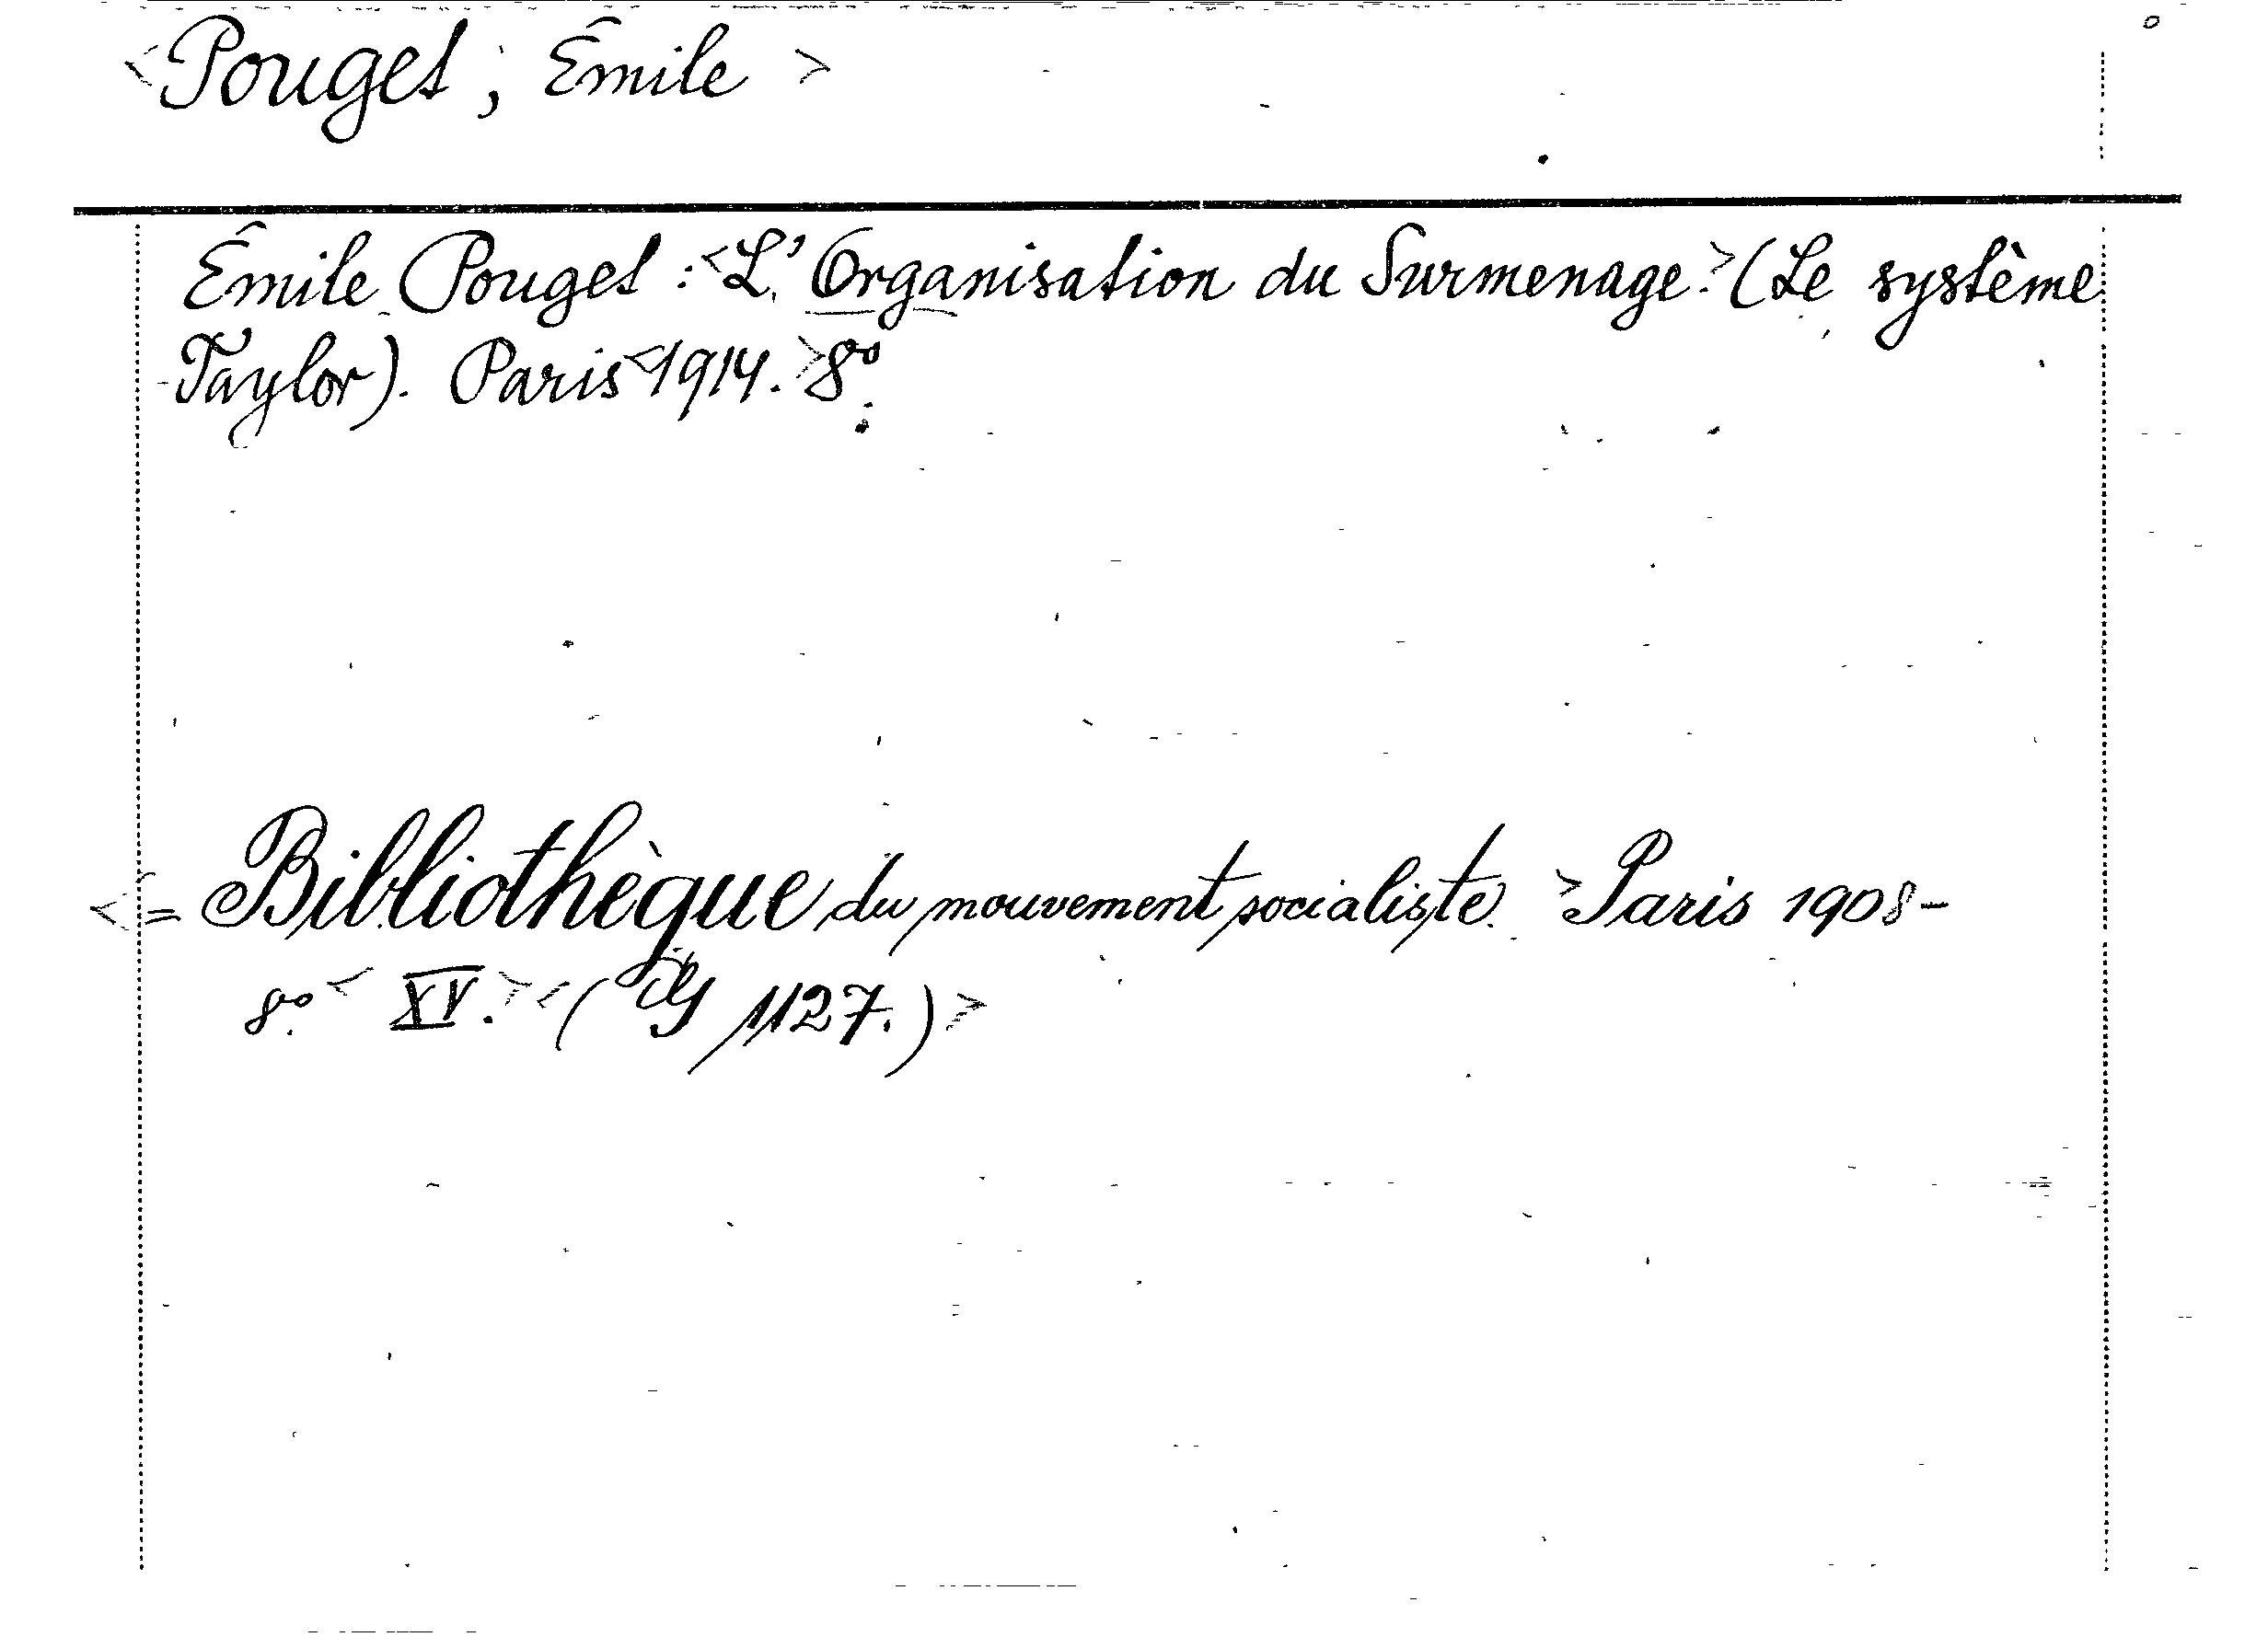 <Pouget, Émile>
Émile Pouget: <L'Organisation du Surmenage.> (Le système
Taylor). Paris <1914.> 8º.
<= Bibliothèque du mouvement socialiste. > Paris 1908-
8º. < XV. > < ( 1127.) >